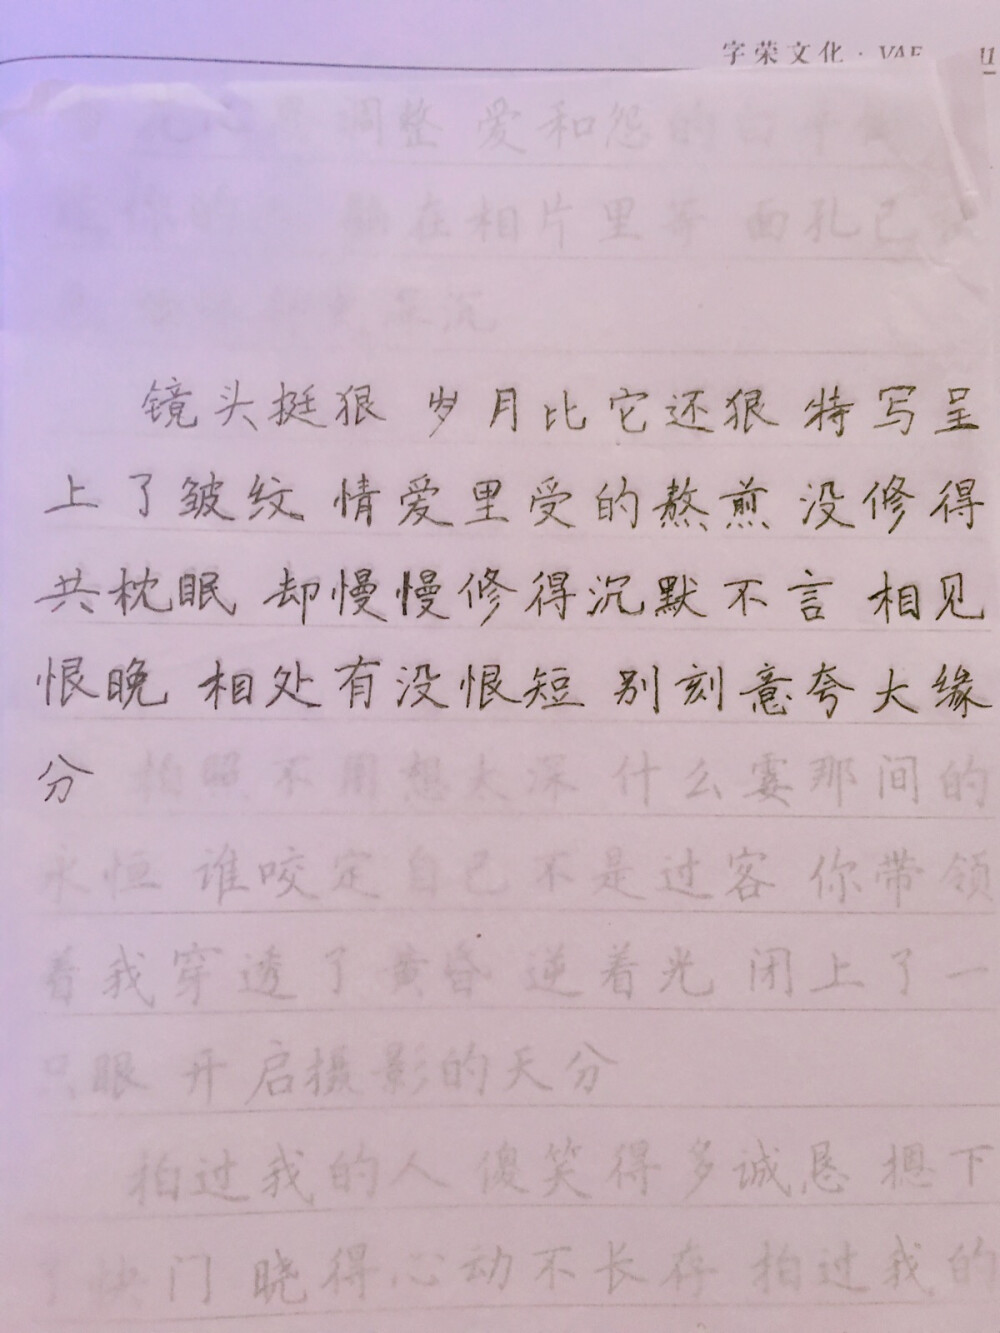 字荣文化·VAE
调整 爱和怨的白平衡
你的 在相片里等 面孔已
沉
镜头挺狠 岁月比它还狠 特写呈
上了皱纹 情爱里受的熬煎 没修得
共枕眠 却慢慢修得沉默不言 相见
恨晚 相处有没恨短 别刻意夸大缘
分 拍照不用想太深 什么霎那间的
永恒 谁咬定自己不是过客 你带领
着我穿透了黄昏 逆着光 闭上了一
只眼 开启摄影的天分
拍过我的人 傻笑得多诚恳 摁下
快门 晓得心动不长存 拍过我的